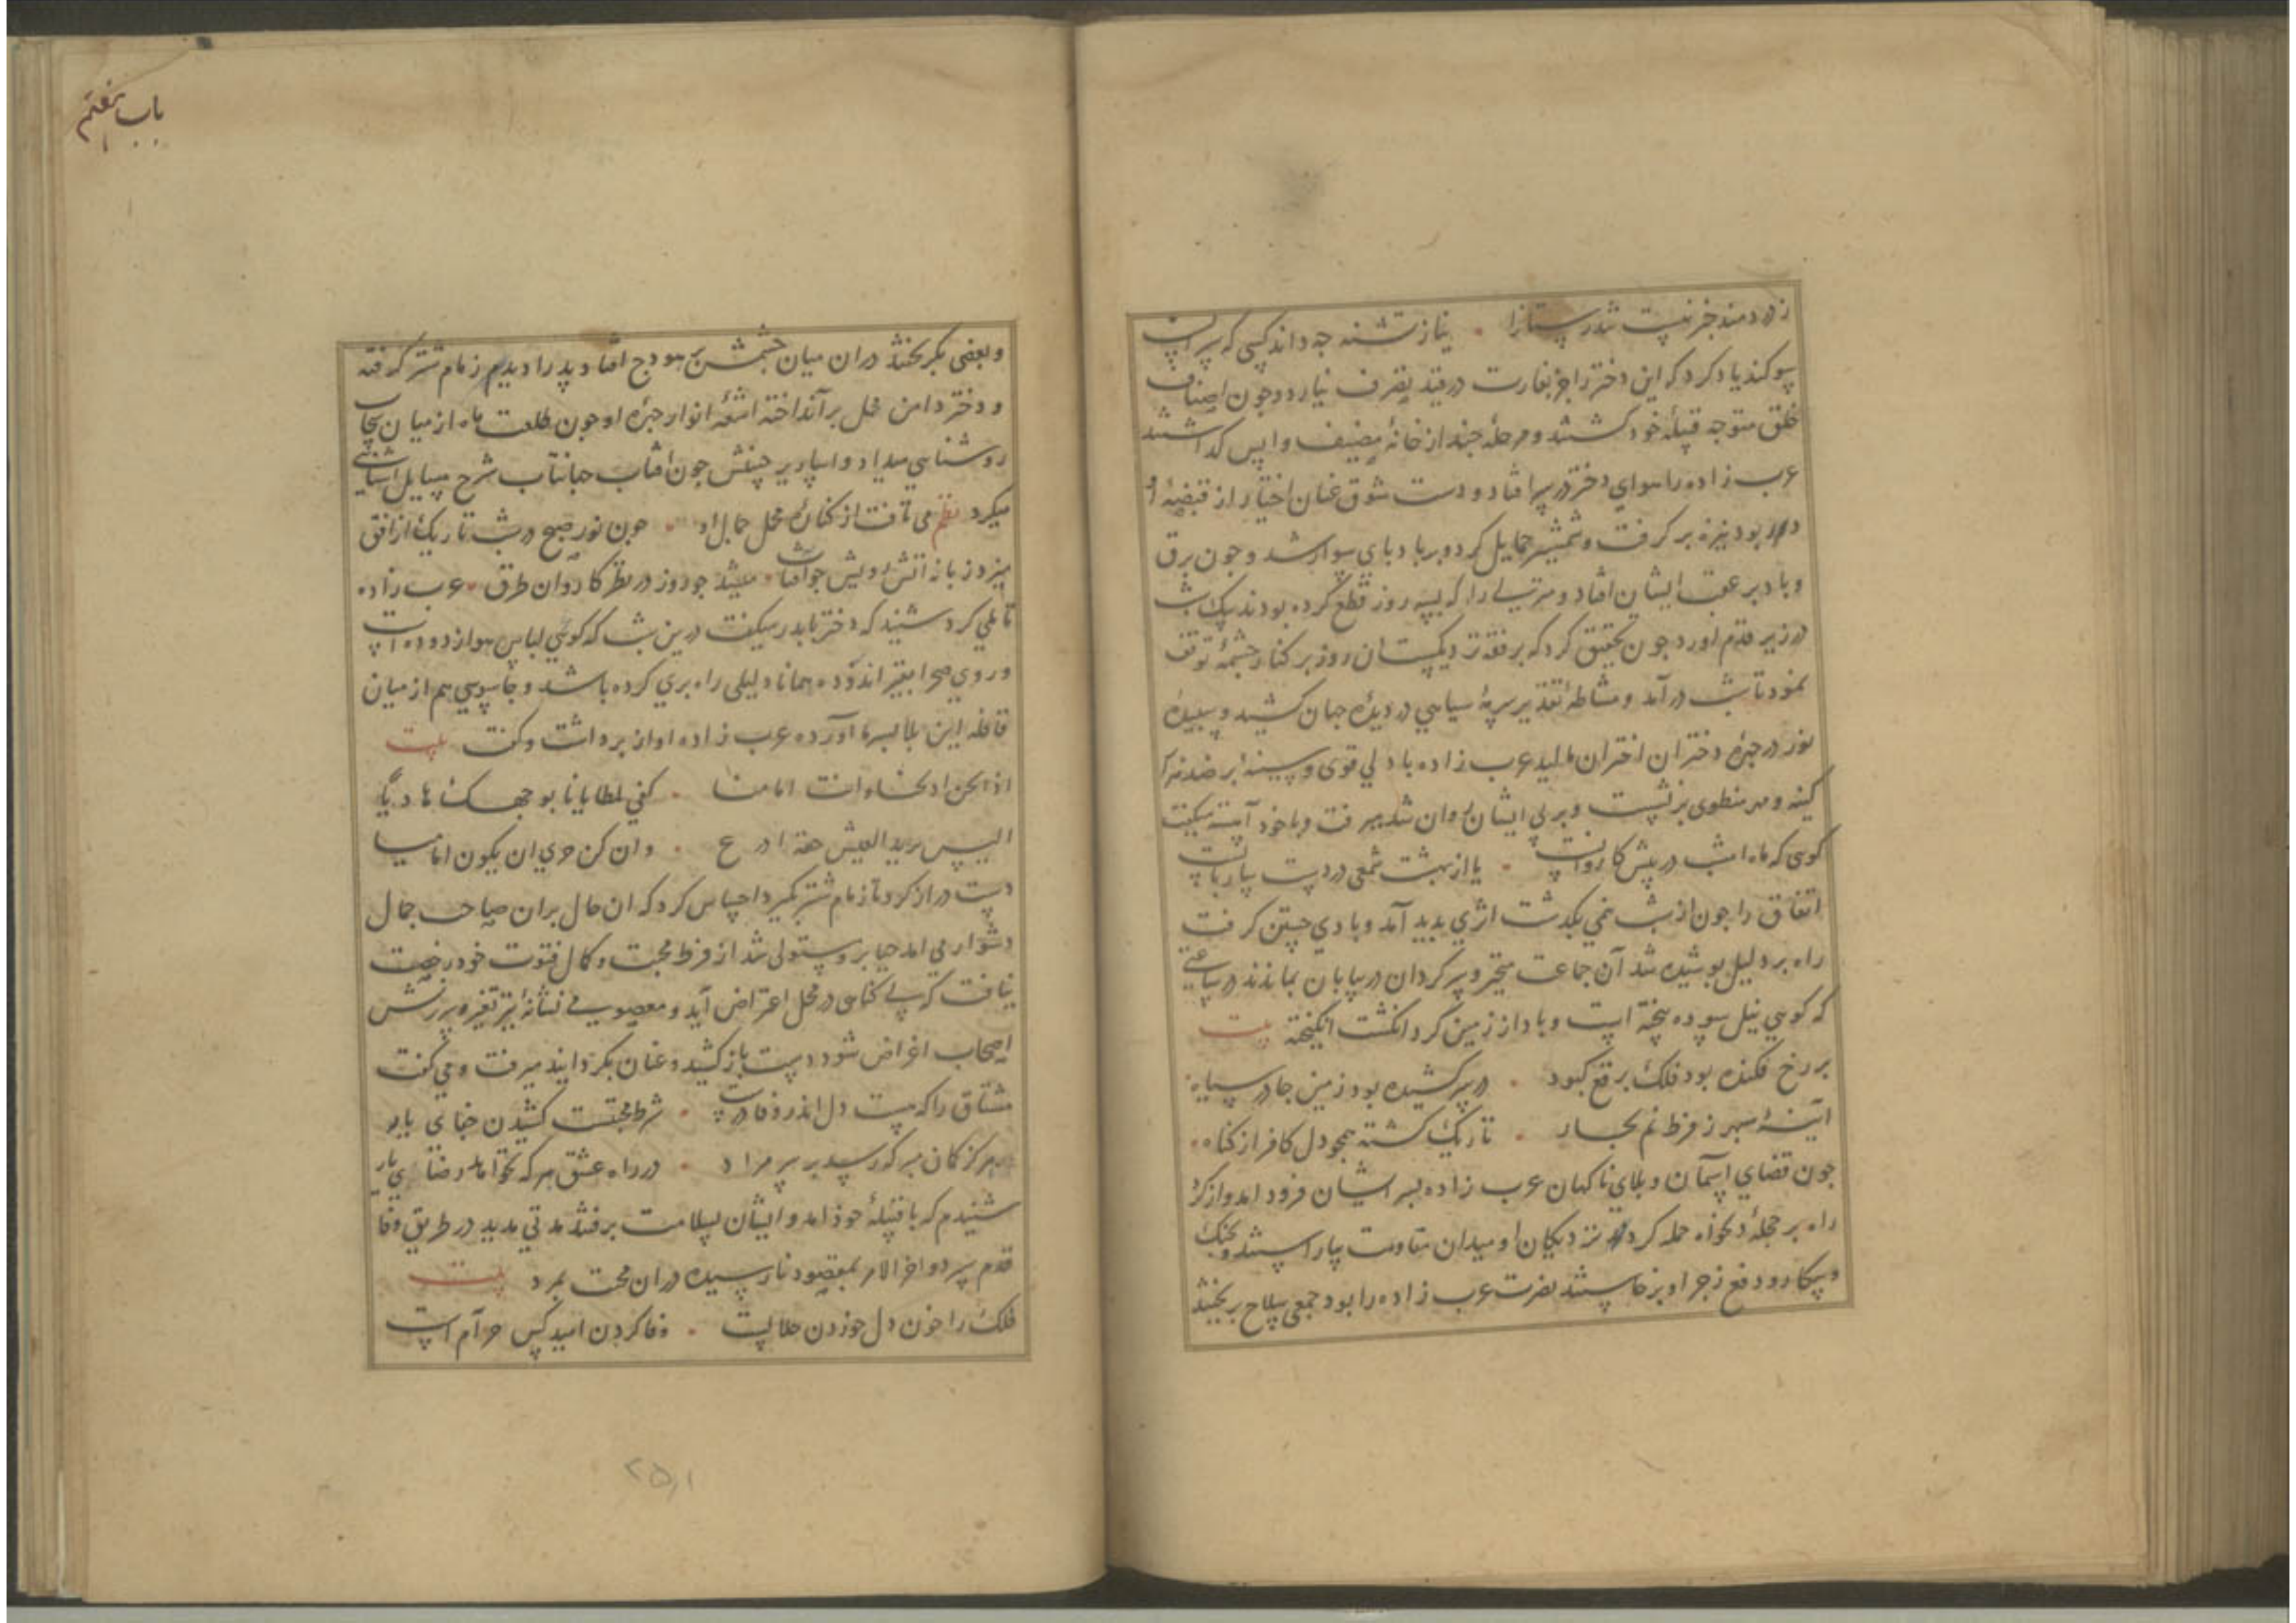 ز دردمند خبر نیست تندرستانرا . نیاز تشنه جه داند کسی که سیرابست
سوکند یاد کرد که این دختر را جز بغارت در قید تصرف نیارد و جون اصناف
خلق متوجه قبیلهٔ خود کشتند و مرحلهٔ جند از خانهٔ مضیف واپس کذاشتند
عرب زاده را هوای دختر در سر افتاد و دست شوق عنان اختیار از قبضهٔ او
در ربود نیزه بر کرفت و شمشیر حمایل کرد و بر بادپای سوار شد و جون برق
و باد بر عقب ایشان افتاد و منزلی را که بسه روز قطع کرده بودند بیک شب
در زیر قدم اورد جون تحقیق کرد که برفقه نزدیکست ان روز بر کنار جشمهٔ توقف
نمود تا شب درآمد و مشاطهٔ تقدیر سرمهٔ سیاهی در دیدهٔ جهان کشید و سپیدهٔ
نور در جهرهٔ دختران اختران مالید عرب زاده با دلی قوی و سینهٔ بر ضد نه از
کینه و مهر منطوی بر نشست و بر پی ایشان روان شد میرفت و با خود آهسته میکفت
کوی که ماه امشب در پیش کاروانست . یا از بهشت شمعی در دست ساربانست
اتفاق را جون از شب نیمی بکذشت ابری بدید آمد و بادی جستن کرفت
راه بر دلیل بوشیده شد آن جماعت متحیر و سرکردان در بیابان بماندند در ساعتی
که کوی نیل سوده بیخته است و باد از زمین کرد انکشت انکیخته بیت
بر رخ فکنده بود فلک برقع کبود . در سر کشیده بود زمین جادر سیاه
آینهٔ سپهر ز فرط نم بخار . تاریک کشته همجو دل کافر از کناه
جون قضای اسمان و بلای ناکهان عرب زاده بسر ایشان فرود امد واز کرد
راه بر حجلهٔ دلخواه حمله کرد نزدیکان او میدان مقاومت بیاراستند و بجنک
و پیکار و دفع زجر او برخاستند نصرت عرب زاده را بود جمعی سلاح بریختند
باب هفتم
و بعضی بکریختند دران میان جشمش بر هودج افتاد پدر را دیدم زمام شتر کرفته
و دختر دامن محمل بر آنداخته اشعهٔ انوار جهرهٔ او جون طلعت ماه از میان سحاب
روشنایی میداد و اساریر جبینش جون افتاب جهانتاب شرح مسایل آشنایی
میکرد نظم می تافت از کنارهٔ محمل جمال او . جون نور صبح در شب تاریک از افق
میزد زبانه آتش رویش جو آفتاب . میشد جو روز در نظر کاروان طرق . عرب زاده
تاملی کرد شنید که دختر با پدر میکفت درین شب که کوی لباس هوا از دوده است
و روی صحرا بقیر اندوده همانا دلیلی راه بری کرده باشد و جاسوسی هم از میان
قافله این بلا بسر ما آورده عرب زاده اواز برداشت و کفت بیت
اذا نحن ادلجنا وانت امامنا . کفی لمطایانا بوجهک هادیا
الیس یزید العیش خفة اذرع . وان کن حری ان یکون امامیا
دست دراز کرد تا زمام شتر بکیرد احساس کرد که ان حال بران صاحب جمال
دشوار می امد حیا برو مستولی شد از فرط محبت و کمال فتوت خود رخصت
نیافت که بی کناهی در محل اعتراض آید و معصومی نشانهٔ تیر تعزیر و سرزنش
اصحاب اغراض شود دست باز کشید و عنان بکردانید میرفت و می کفت
مشتاق را که هست دل اندر وفا درست . شرط محبتست کشیدن جفای یار
هرکز کان مبر که رسید بر سر مراد . در راه عشق هر که نخواهد رضای یار
شنیدم که با قبیلهٔ خوذ امد و ایشان بسلامت برفتند مدتی مدید در طریق وفا
قدم سپرد و اخر الامر بمقصود نارسیده دران محبت بمرد بیت
فلک را خون دل خوردن حلالست . وفا کردن امید کس حرام است
۲۵۱